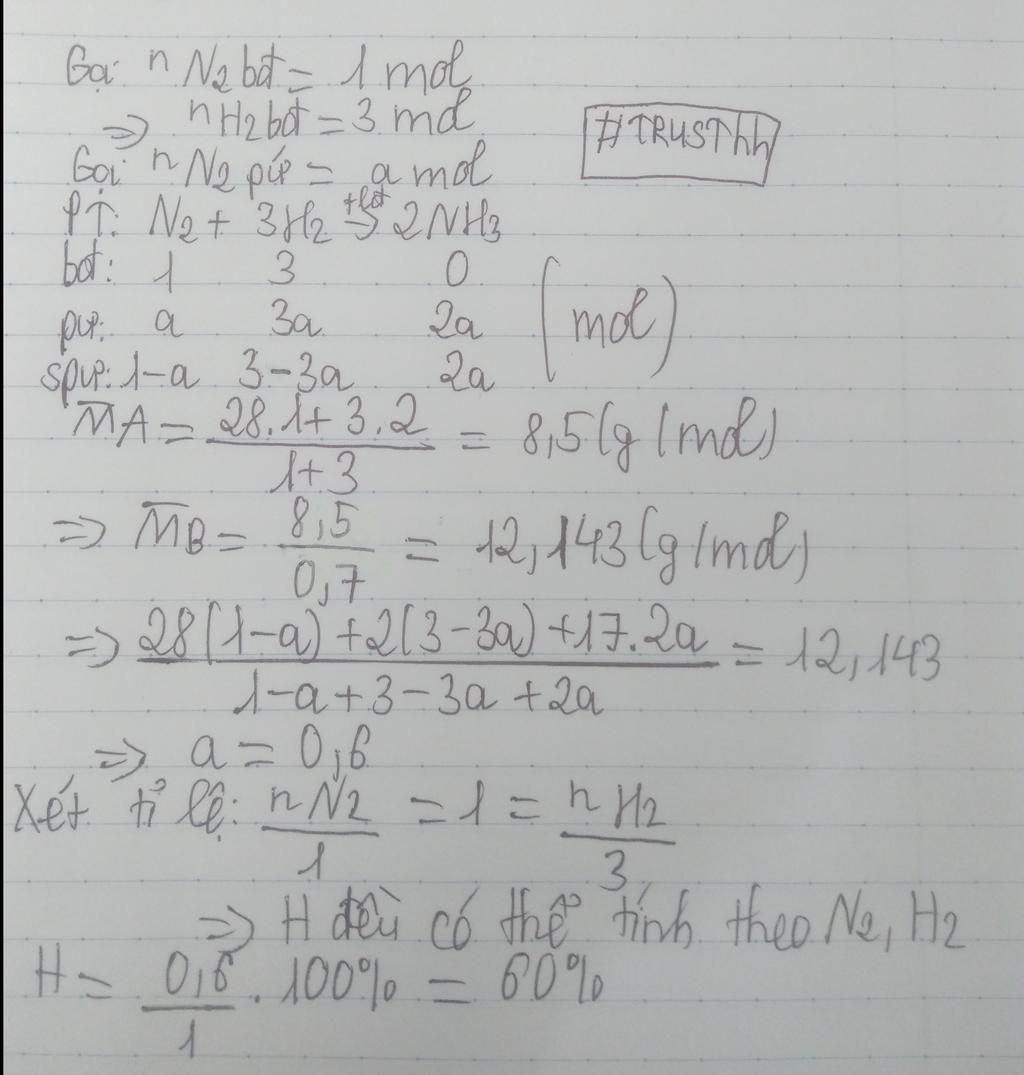 Gọi n N2 bđ = 1 mol
=> nH2 bđ = 3 mol
#TRUSThh
Gọi n N2 pứ = a mol
PT: N2 + 3H2 +to→ 2NH3
bđ: 1 3 0
pứ: a 3a 2a (mol)
spứ: 1-a 3-3a 2a
M̅A = (28.1+3.2)/(1+3) = 8,5 (g/mol)
=> M̅B = 8,5/0,7 = 12,143 (g/mol)
=> (28(1-a)+2(3-3a)+17.2a)/(1-a+3-3a+2a) = 12,143
=> a = 0,6
Xét tỉ lệ: nN2/1 = 1 = nH2/3
=> H đều có thể tính theo N2, H2
H = 0,6/1 . 100% = 60%